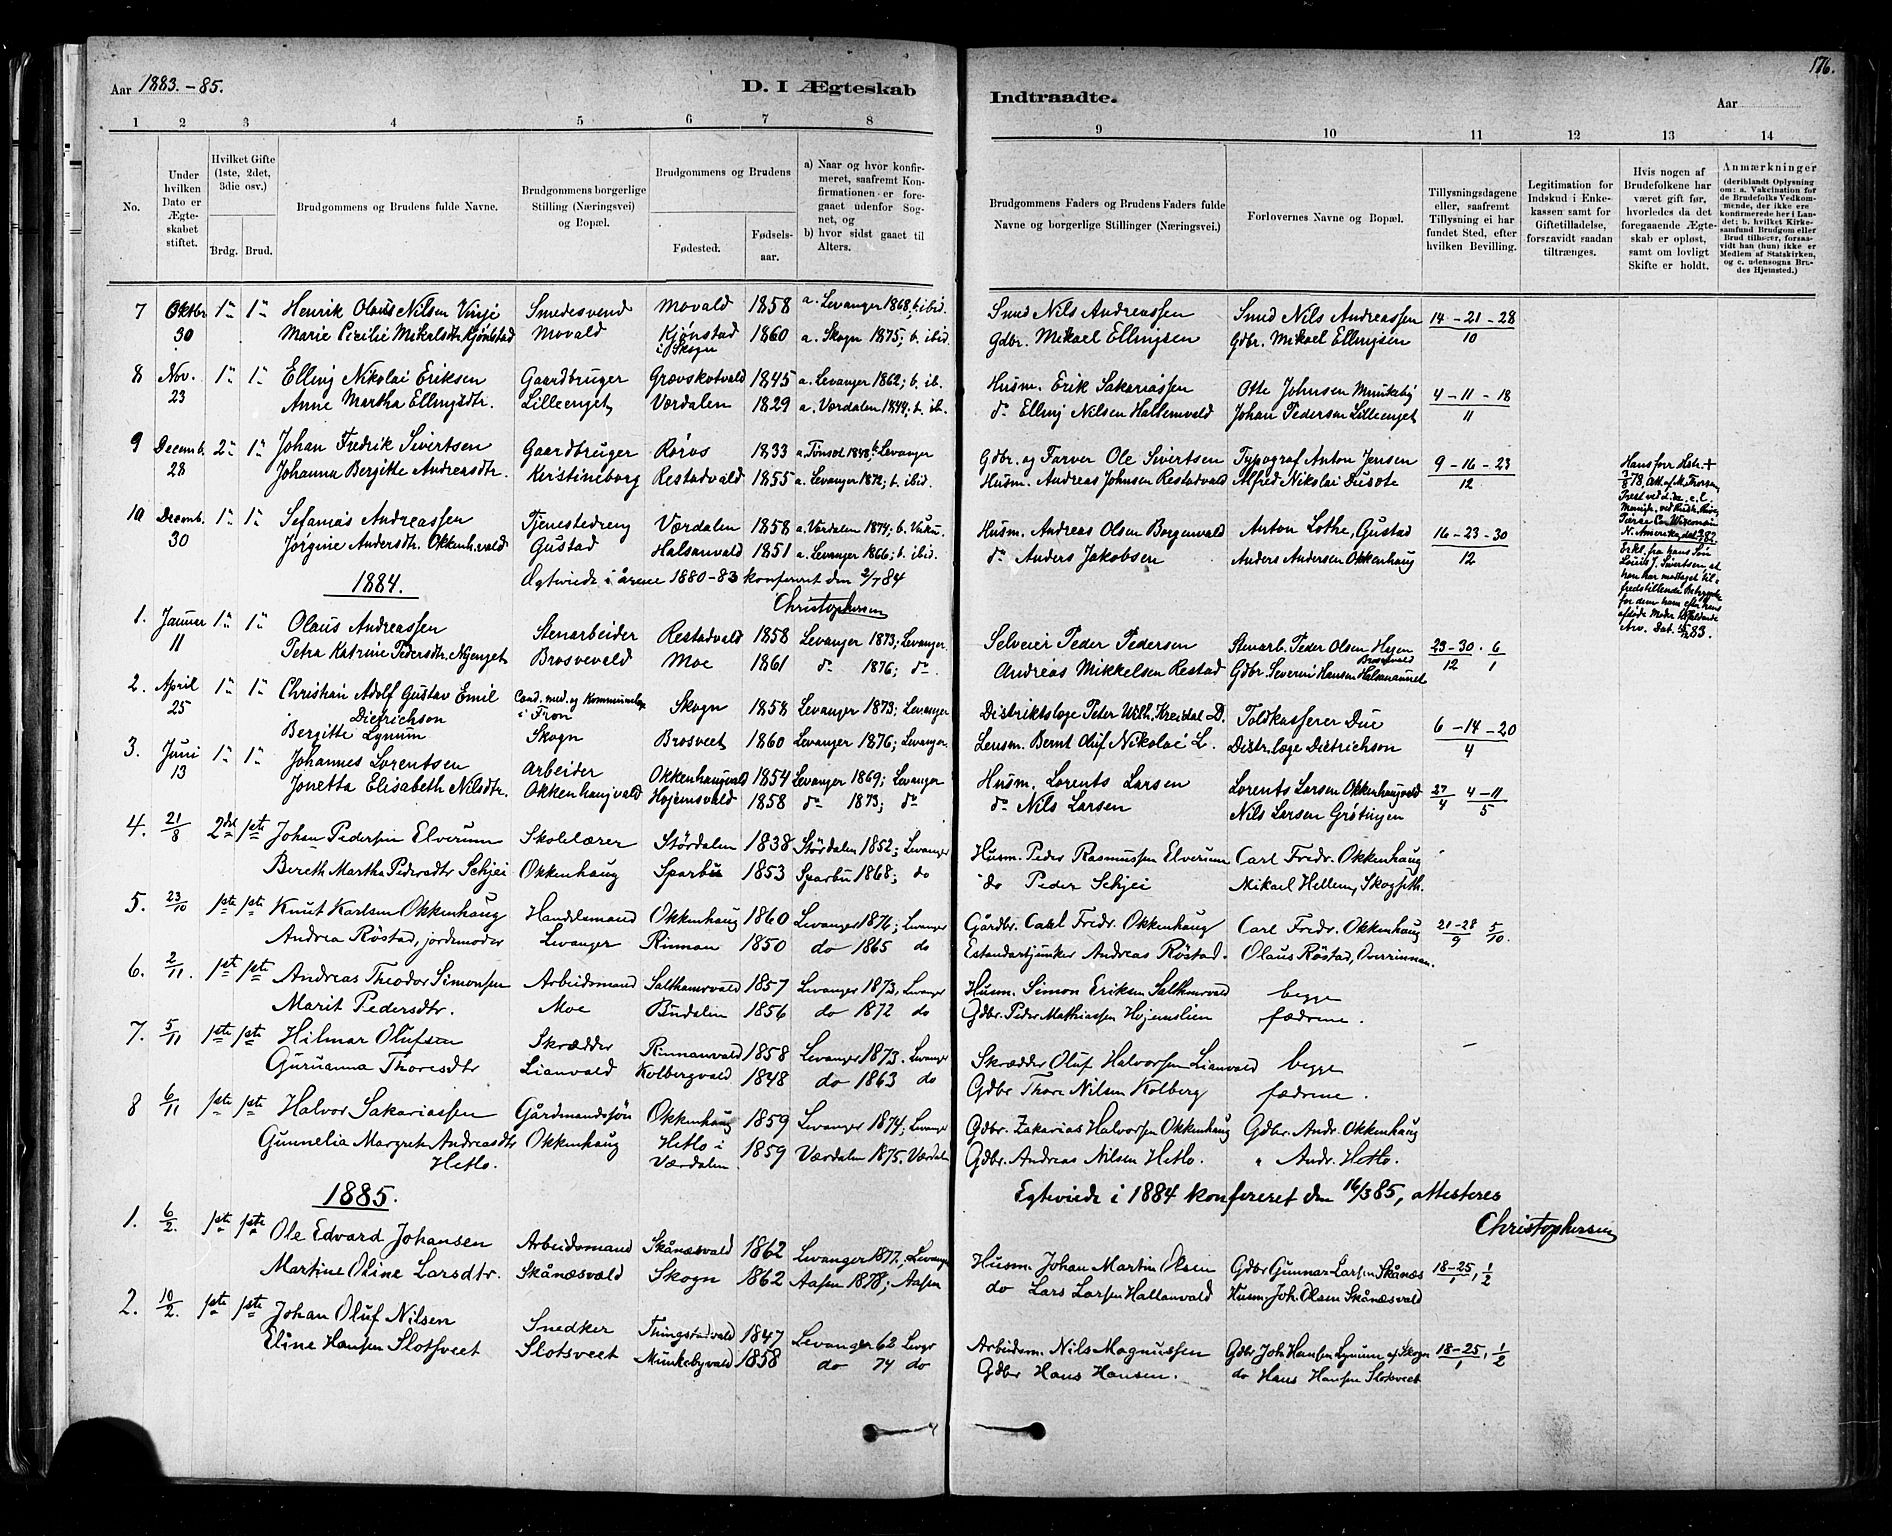 Aar 1883.-85.
D. I Ægteskab
Indtraadte.
Aar
176.
1 2 3 4 5 6 7 8 9 10 11 12 13 14
No.
Under hvilken Dato er Ægteskabet stiftet.
Hvilket Gifte (1ste, 2det, 3die osv.)
Brdg. Brud.
Brudgommens og Brudens fulde Navne.
Brudgommens borgerlige Stilling (Næringsvei) og Bopæl.
Brudgommens og Brudens
Fødested.
Fødselsaar.
a) Naar og hvor konfirmeret, saafremt Konfirmationen er foregaaet udenfor Sognet, og
b) hvor sidst gaaet til Alters.
Brudgommens Faders og Brudens Faders fulde Navne og borgerlige Stillinger (Næringsvei.)
Forlovernes Navne og Bopæl.
Tillysningsdagene eller, saafremt Tillysning ei har fundet Sted, efter hvilken Bevilling.
Legitimation for Indskud i Enkekassen samt for Giftetilladelse, forsaavidt saadan tiltrænges.
Hvis nogen af Brudefolkene har været gift før, hvorledes da det foregaaende Ægteskab er opløst, samt om lovligt Skifte er holdt.
Anmærkninger (deriblandt Oplysning om: a. Vakcination for de Brudefolks Vedkommende, der ikke ere konfirmerede her i Landet; b. hvilket Kirkesamfund Brudgom eller Brud tilhører, forsaavidt han (hun) ikke er Medlem af Statskirken, og c. udensogns Brudes Hjemsted.)
7 Oktbr 1ste 1ste Henrik Olaus Nilsen Vinje Smedesvend Movald 1858 a. Levanger 1868, b. ibid. Smed Nils Andreassen Smed Nils Andreassen 14-21-28
30 Marie Cecilie Mikelsdtr Kjønstad Movald Kjønstad i Skogn 1860 a. Skogn 1875; b. ibid. Gdbr. Mikael Ellingsen Gdbr. Mikael Ellingsen 10
8 Nov. 1ste 1ste Elling Nikolai Eriksen Gaardbruger Gravskotvald 1845 a. Levanger 1862; b. ib. Husm. Erik Sakariassen Otte Johnsen Munkeby 4-11-18
23 Anne Martha Ellingsdtr. Lilleenget Værdalen 1829 a. Værdalen 1844; b. ib. do Elling Nilsen Hallemvald Johan Pedersen Lilleenget 11
9 Decemb. 2den 1ste Johan Fredrik Sivertsen Gaardbruger Røros 1833 a. Tønset 1848 b. Levanger Gdbr. og Farver Ole Sivertsen Typograf Anton Jensen 9-16-23
28 Johanna Bergitte Andreasdtr. Kristineborg Restadvald 1855 a. Levanger 1872; b. ibid. Husm. Andreas Johnsen Restadvald Alfred Nikolai Dusote 12
10 Decemb. 1ste 1ste Sefanias Andreassen Tjenestedreng Værdalen 1858 a. Værdalen 1874; b. Husm. Andreas Olsen Borgenvald Anton Lothe, Gustad 16-23-30
30 Jørgine Andersdtr. Okkenh.vald Gustad Halsanvald 1851 a. Levanger 1866; b. ibid. do Anders Jakobsen Anders Andersen Okkenhaug 12
Hans forr. Hstr. +
3/8 78, Att. af M.
N. Amerika
Erkl. fra hans Søn
Louis J. Sivertsen at
han har modtaget til-
fredsstillende
for dem ham efter hans
afdøde Moder tilfaldende
Arv. Dat. 83.
Ægteviede i årene 1880-83 konfereret den 2/7 84
Christophersen
1884.
1. Januar 1ste 1ste Olaus Andreassen Stenarbeider Restadvald 1858 Levanger 1873; Levanger. Selveier Peder Pedersen Stenarb. Peder Olsen Hegen Brosvevald 23-30 . 6
11 Petra Katrine Pedersdtr. Nyenget Brosvevald Moe 1861 do 1876; do. Andreas Mikkelsen Restad Gdbr. Severin Hansen Halsanaunet 12 1
2. April 1ste 1ste Christian Adolf Gustav Emil Dietrichson Cand. med. og Kommunelæge i Fron Skogn 1858 Levanger 1873; Levanger Distriktslæge Peter Wilh. Kreidal D. Toldkasserer Due 6-14-20
25 Bergitte Lynum Skogn Brosveet 1860 Levanger 1876; Levanger. Lensm. Bernt Oluf Nikolai L. Distr.læge Dietrichson 4
3. Juni 1ste 1ste Johannes Lorentsen Arbeider Okkenhaugvald 1854 Levanger 1869; Levanger Husm. Lorents Larsen Lorents Larsen Okkenhaugvald 27 4-11
13 Jonetta Elisabeth Nilsdtr. Okkenhaugvald Hojemsvald 1858 do 1873; do do. Nils Larsen Nils Larsen Grøtingen 4 5
4. 21/8 2det 1ste Johan Pedersen Elverum Skolelærer Stördalen 1838 Stördalen 1852; Levanger Husm. Peder Rasmussen Elverum Carl Fredr. Okkenhaug
Bereth Martha Pedersdtr Schjei Okkenhaug Sparbu 1853 Sparbu 1868; do do Peder Schjei Mikael Hellem, Skogseth.
5. 23/10 1ste 1ste Knut Karlsen Okkenhaug Handelsmand Okkenhaug 1860 Levanger 1876; Levanger Gårdbr. Carl Fredr. Okkenhaug Carl Fredr. Okkenhaug 21-28/9 5/10.
Andrea Röstad, jordemoder Levanger Rinnan 1850 do 1865 do Estandartjunker Andreas Röstad. Olaus Röstad, Overrinnan.
6. 2/11. 1ste 1ste Andreas Theodor Simonsen Arbeidsmand Salthamrvald 1857 Levanger 1873, Levanger Husm. Simon Eriksen Salthmrvald begge
Marit Pedersdtr. Moe Bundalin 1856 do 1872 do Gdbr. Peder Mathiassen Hojemslien fædrene.
7. 5/11 1ste 1ste Hilmar Olufsen Skrædder Rinnanvald 1858 Levanger 1873. Levanger Skrædder Oluf Halvorsen Lianvald begge —
Guruanna Thoresdtr Lianvald Kolbergvald 1848 do 1863 do Gdbr Thore Nilsen Kolberg fædrene.
8 6/11 1ste 1ste Halvor Sakariassen Gårdmandssön Okkenhaug 1859 Levanger 1874; Levanger Gdbr. Zakarias Halvorsen Okkenhaug Gdbr. Andr. Okkenhaug
Gunnelia Margreth Andreasdtr Hetlo. Okkenhaug Hetlo i Værdalen. 1859 Værdalen 1875. Værdalen Gdbr. Andreas Nilsen Hetlo. " Andr. Hetlo.
Egteviede i 1884 konfereret den 16/3 85, attesteres
Christophersen
1885.
1. 6/2. 1ste 1ste Ole Edvard Johansen Arbeidsmand Skånesvald 1862 Levanger 1877, Levanger Husm. Johan Martin Olsen Gdbr Gunnar Larsen Skånes 18-25/1, 1/2
Martine Oline Larsdtr. Skånæsvald Skogn 1862 Aasen 1878; Aasen do Lars Larsen Hallanvald Husm. Joh. Olsen Skånæsvald
2. 10/2. 1ste 1ste Johan Oluf Nilsen Snedker Thingstadvald 1847 Levanger 62 Levgr Arbeidsm. Nils Magnussen Gdbr Joh. Hansen Lynum af Skogn 18-25/1, 1/2
Eline Hansen Slotsveet Slotsveet Munkebyvald 1858 do 74 do Gdbr Hans Hansen. do Hans Hansen Slotsveet